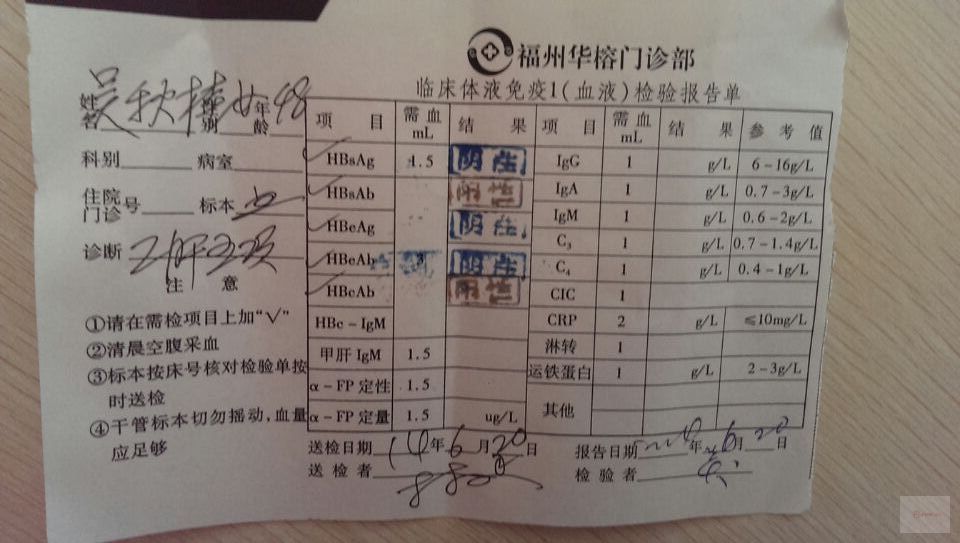 福州华榕门诊部
临床体液免疫1(血液)检验报告单
姓名 吴秋 性别 女 年龄 48
科别 病室
住院门诊号 标本 血
诊断 乙肝五项
注 意
①请在需检项目上加“√”
②清晨空腹采血
③标本按床号核对检验单按时送检
④干管标本切勿摇动,血量应足够
项 目 需血mL 结 果 项 目 需血mL 结 果 参考值
HBsAg 1.5 阴性 IgG 1 g/L 6-16g/L
HBsAb 阳性 IgA 1 g/L 0.7-3g/L
HBeAg 阴性 IgM 1 g/L 0.6-2g/L
C₃ 1 g/L 0.7-1.4g/L
HBeAb 3 阴性 C₄ 1 g/L 0.4-1g/L
HBcAb 阳性 CIC 1
HBc-IgM CRP 2 g/L ≤10mg/L
甲肝IgM 1.5 淋转 1
α-FP定性 1.5 运铁蛋白 1 g/L 2-3g/L
α-FP定量 1.5 ug/L 其他
送检日期 14年6月20日 报告日期 年6月20日
送检者 检验者